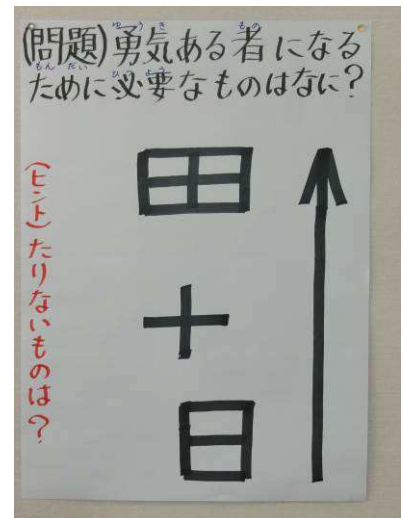 (問題)勇気ある者になる
ために必要なものはなに?
田
十
日
(ヒント)たりないものは?